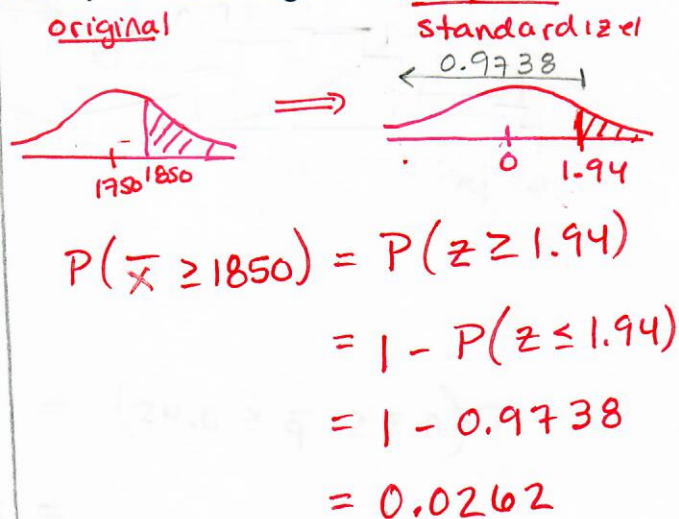 original
standardizel
0.9738
⟹
1750 1850
0 1.94
P(x̄ ≥ 1850) = P(z ≥ 1.94)
= 1 - P(z ≤ 1.94)
= 1 - 0.9738
= 0.0262